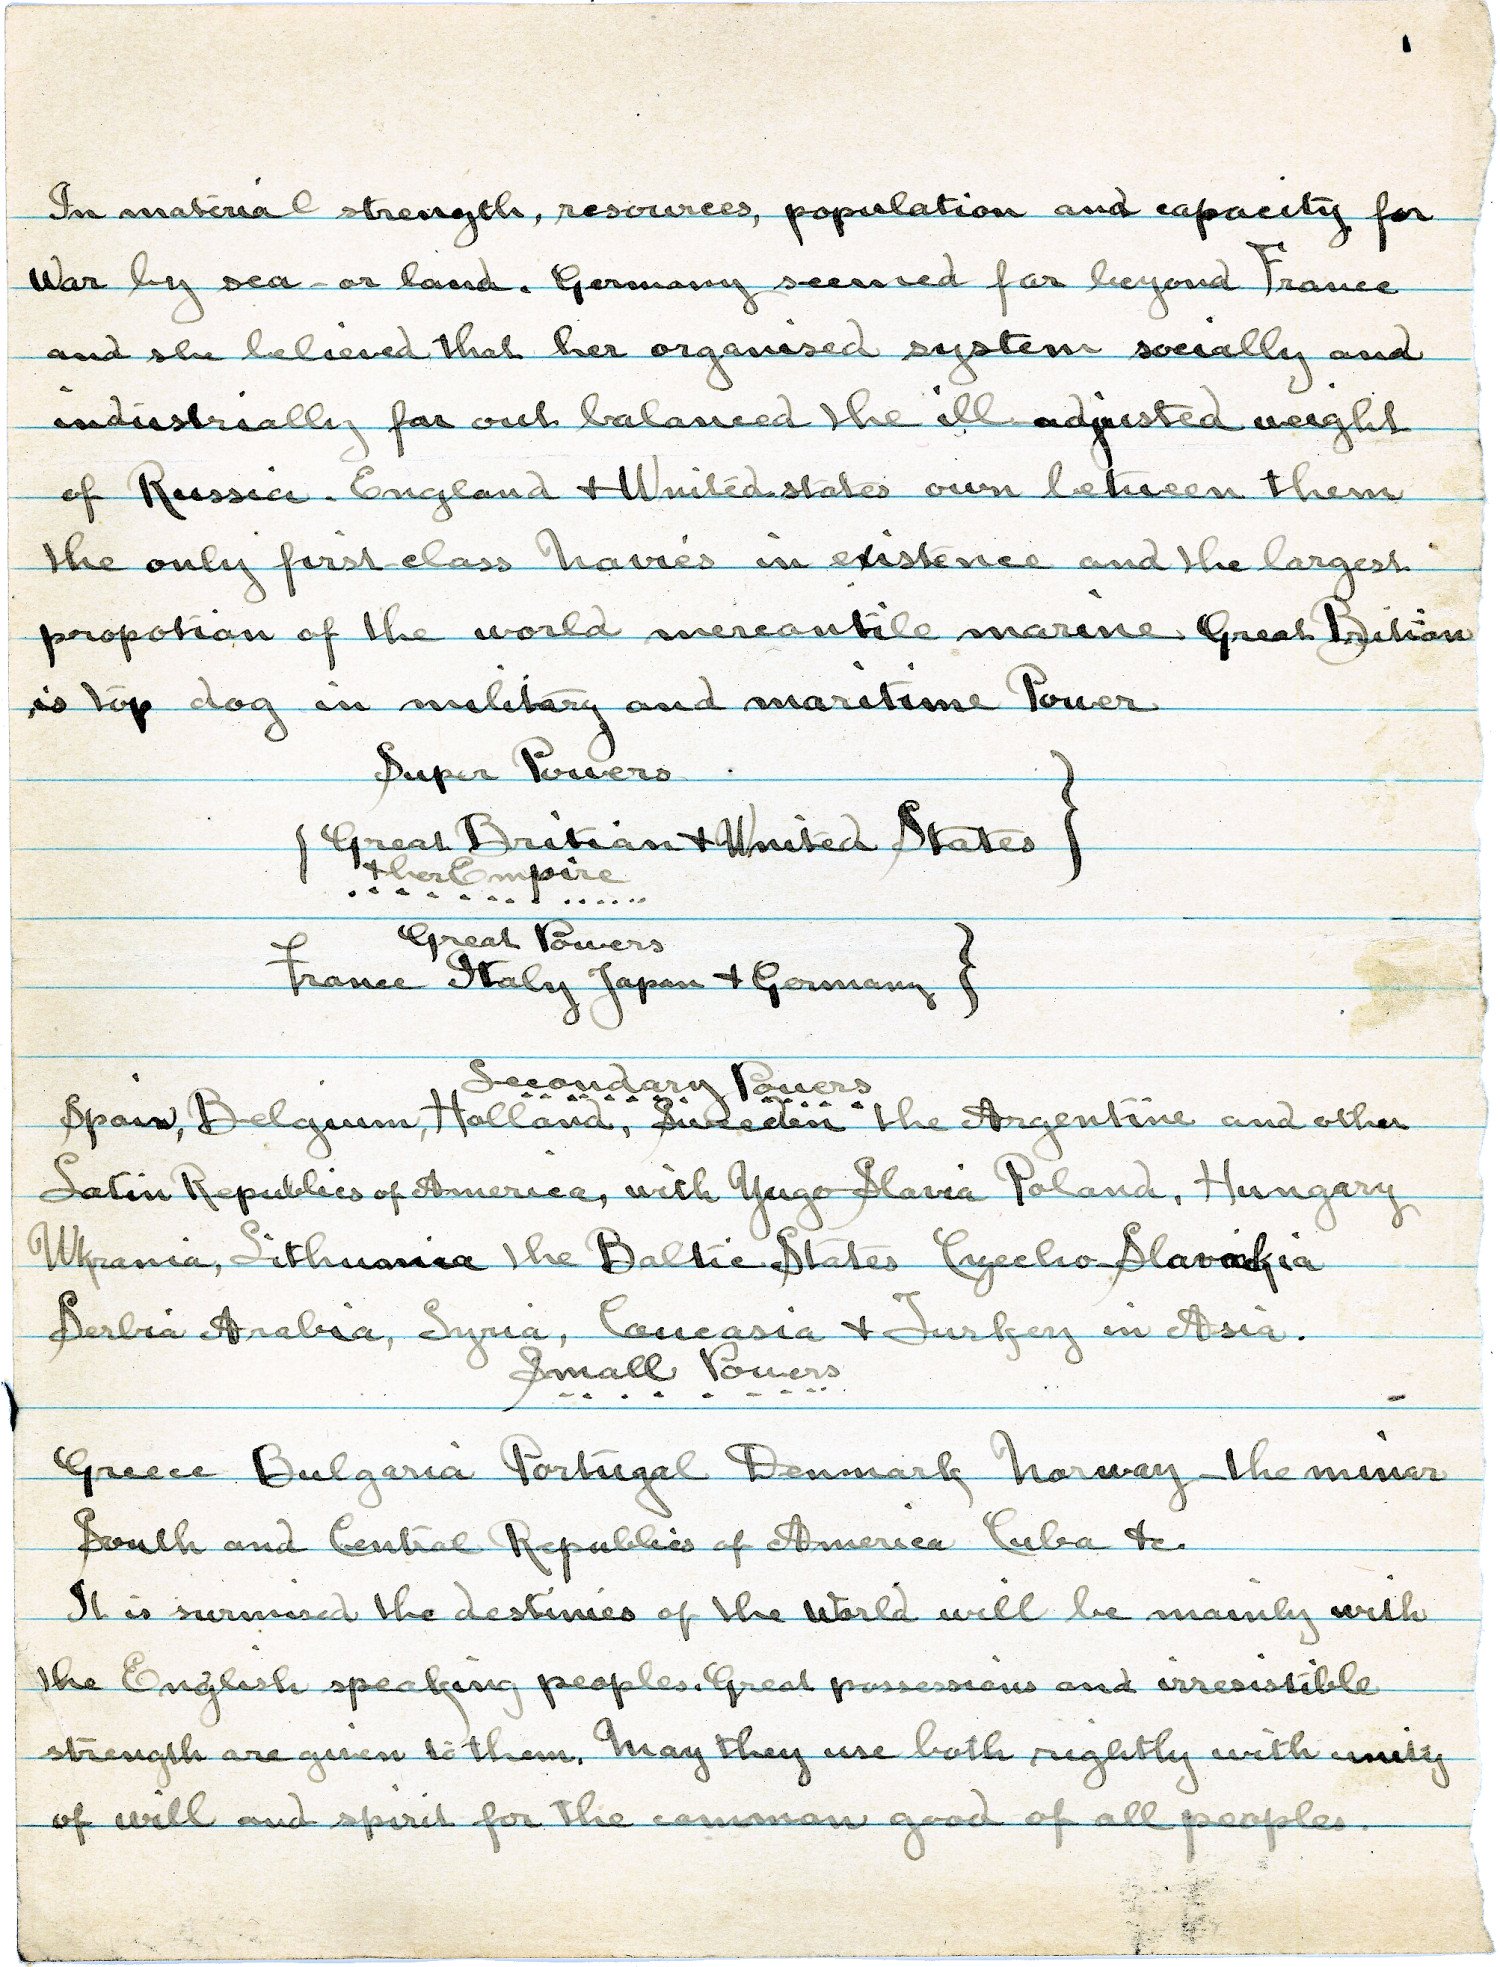 In material strength, resources, population and capacity for
War by sea - or land. Germany seemed far beyond France
and she believed that her organised system socially and
industrially far out balanced the ill adjusted weight
of Russia. England + United states own between them
the only first-class Navies in existence and the largest
propotian of the world mercantile marine. Great Britian
is top dog in military and maritime Power
Super Powers
{ Great Britian + United States }
+ her Empire
Great Powers
France Italy Japan + Germany }
Secondary Powers
Spain, Belgium, Holland, Sweden the Argentine and other
Latin Republics of America, with Yugo-Slavia Poland, Hungary
Ukrania, Lithuania the Baltic States Czecho-Slavakia
Serbia Arabia, Syria, Caucasia + Turkey in Asia.
Small Powers
Greece Bulgaria Portugal Denmark Norway - the minor
South and Central Republics of America Cuba &c.
It is surmised the destinies of the World will be mainly with
the English speaking peoples. Great possessions and irresistible
strength are given to them. May they use both rightly with unity
of will and spirit for the common good of all peoples.